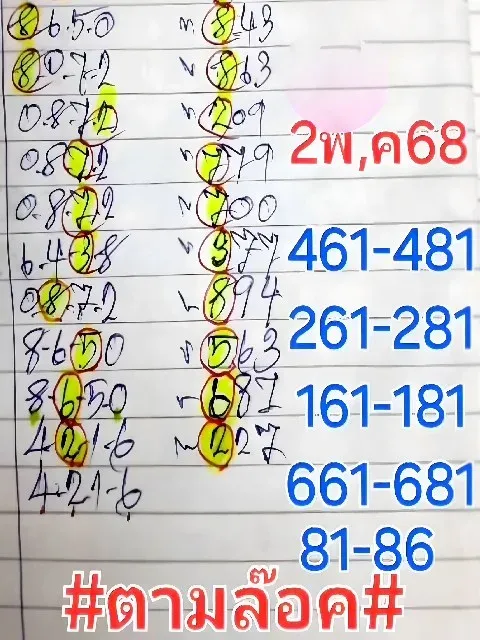 8-6-5-0 ท 843
8-0-7-2 ท 863
0-8-7-2 ท 209
0-8-7-2 ท 779
0-8-7-2 ท 700
6-4-3-8 ท 377
0-8-7-2 ท 894
8-6-5-0 ท 563
8-6-5-0 ท 687
4-2-1-6 ท 227
4-2-1-6
2พ,ค68
461-481
261-281
161-181
661-681
81-86
#ตามล๊อค#